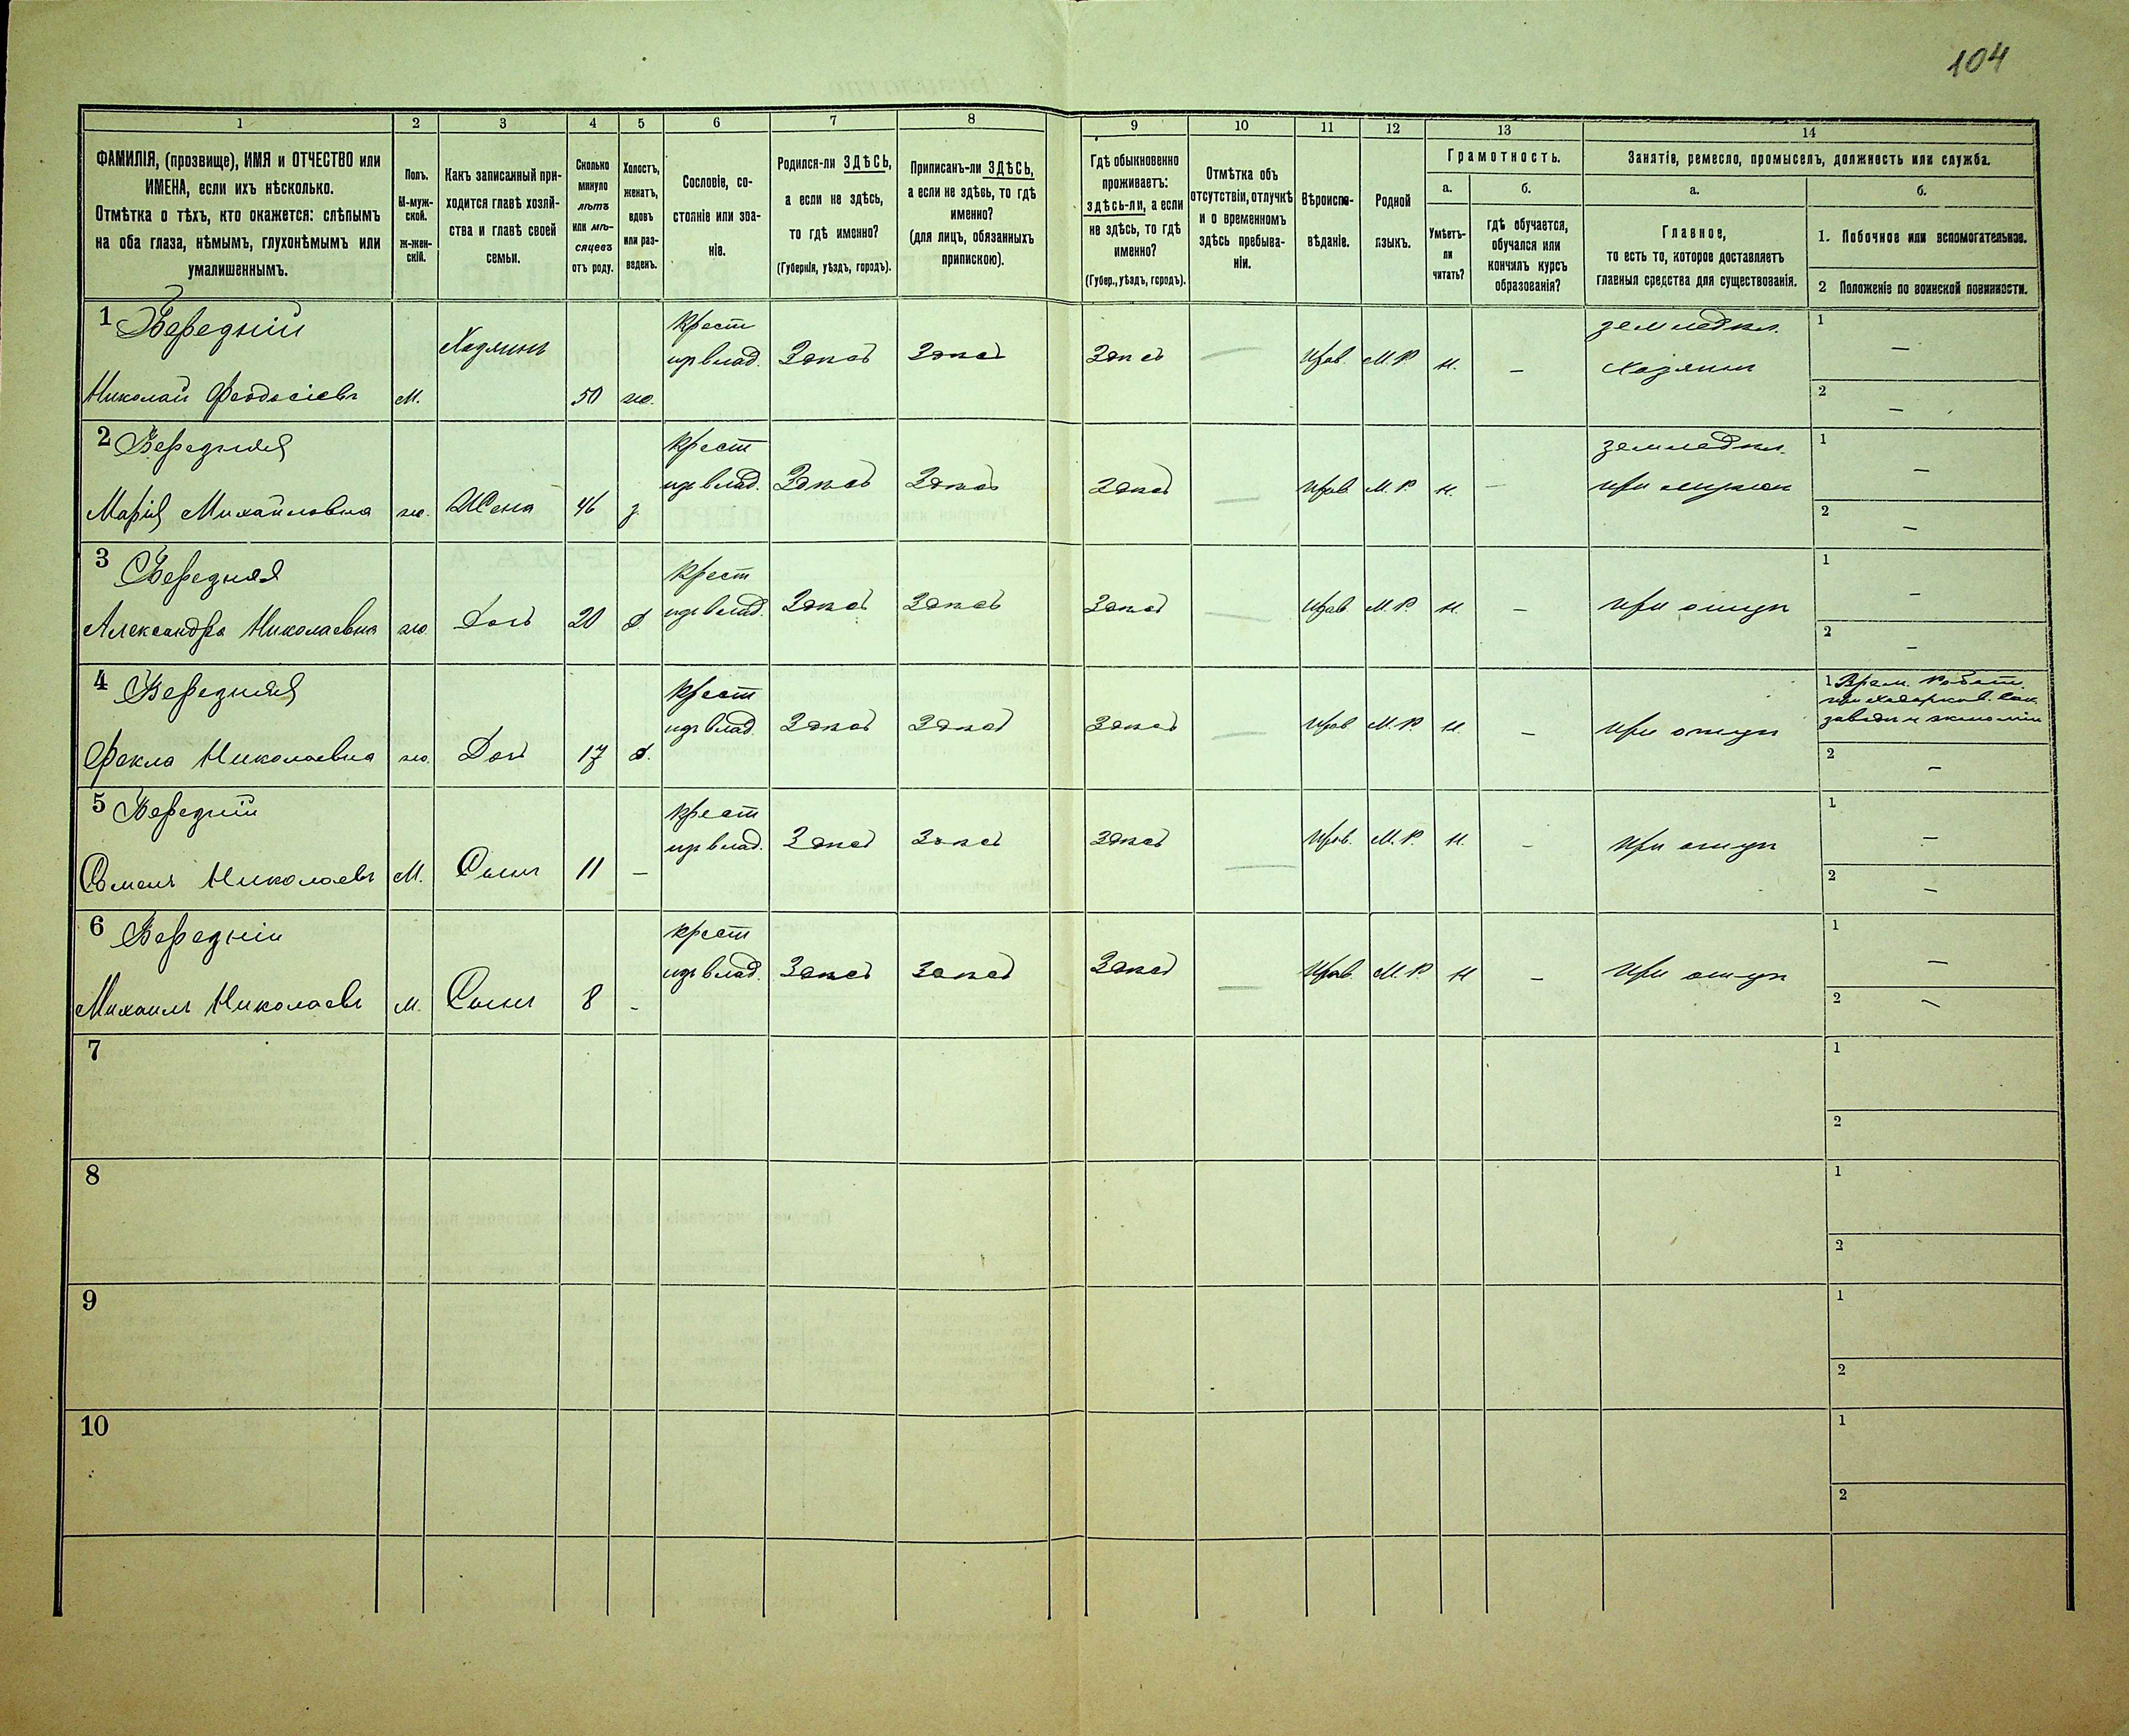 104
1 2 3 4 5 6 7 8 9 10 11 12 13 14
ФАМИЛІЯ, (прозвище), ИМЯ и ОТЧЕСТВО или
ИМЕНА, если ихъ нѣсколько.
Отмѣтка о тѣхъ, кто окажется: слѣпымъ
на оба глаза, нѣмымъ, глухонѣмымъ или
умалишеннымъ.
Полъ.
М-муж-
ской.
Ж-жен-
скій.
Какъ записанный при-
ходится главѣ хозяй-
ства и главѣ своей
семьи.
Сколько
минуло
лѣтъ
или мѣ-
сяцевъ
отъ роду.
Холостъ,
женатъ,
вдовъ
или раз-
веденъ.
Сословіе, со-
стояніе или зва-
ніе.
Родился-ли ЗДѢСЬ,
а если не здѣсь,
то гдѣ именно?
(Губернія, уѣздъ, городъ).
Приписанъ-ли ЗДѢСЬ,
а если не здѣсь, то гдѣ
именно?
(для лицъ, обязанныхъ
припискою).
Гдѣ обыкновенно
проживаетъ:
здѣсь-ли, а если
не здѣсь, то гдѣ
именно?
(Губер., уѣздъ, городъ).
Отмѣтка объ
отсутствіи, отлучкѣ
и о временномъ
здѣсь пребыва-
ніи.
Вѣроиспо-
вѣданіе.
Родной
языкъ.
Грамотность.
а.
Умѣетъ-
ли
читать?
б.
гдѣ обучается,
обучался или
кончилъ курсъ
образованія?
Занятіе, ремесло, промыселъ, должность или служба.
а.
Главное,
то есть то, которое доставляетъ
главныя средства для существованія.
б.
1. Побочное или вспомогательное.
2 Положеніе по воинской повинности.
1 Бередній
Николай Феодосіевъ М. Хозяинъ 50 ж. крест изъ влад. Здѣсь Здѣсь Здѣсь — Прав. М.Р. н. — земледѣл. Хозяинъ 1 — 2 —
2 Бередняя
Марія Михайловна ж. Жена 46 з. крест изъ влад. Здѣсь Здѣсь Здѣсь — Прав. М.Р. н. — земледѣл. при мужѣ 1 — 2 —
3 Бередняя
Александра Николаевна ж. Дочь 20 д. крест изъ влад. Здѣсь Здѣсь Здѣсь — Прав. М.Р. н. — при отцѣ 1 — 2 —
4 Бередняя
Фекла Николаевна ж. Дочь 17 д. крест изъ влад. Здѣсь Здѣсь Здѣсь — Прав. М.Р. н. — при отцѣ 1 Врем. Работ.
при
2 —
5 Бередній
Семенъ Николаевъ М. Сынъ 11 — крест изъ влад. Здѣсь Здѣсь Здѣсь — Прав. М.Р. н. — при отцѣ 1 — 2 —
6 Бередній
Михаилъ Николаевъ М. Сынъ 8 - крест изъ влад. Здѣсь Здѣсь Здѣсь — Прав. М.Р. н — при отцѣ 1 — 2 —
7 1 2
8 1 2
9 1 2
10 1 2